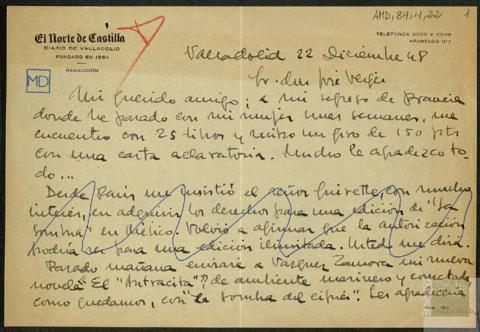 AMD, 84, 4, 22
1
El Norte de Castilla
DIARIO DE VALLADOLID
FUNDADO EN 1854
REDACCIÓN
TELEFONOS 2055 Y 2029
APARTADO
MD
Valladolid 22 Diciembre 48
Sr. don José Vergés
Mi querido amigo; a mi regreso de Francia
donde he pasado con mi mujer unas semanas, me
encuentro con 25 libros y recibo un giro de 150 pts
con una carta aclaratoria. Mucho le agradezco to-
do...
Desde París me insistió el señor con mucho
interés, en adquirir los derechos para una edición de "La
sombra" en México. Volvió a afirmar que la autorización
podría ser para una edición ilimitada. Usted me dirá.
Pasado mañana enviaré a Vázquez Zamora mi nueva
novela "El "Antracita", de ambiente marinero y conectada,
como quedamos, con "la sombra del ciprés". Les agradecería